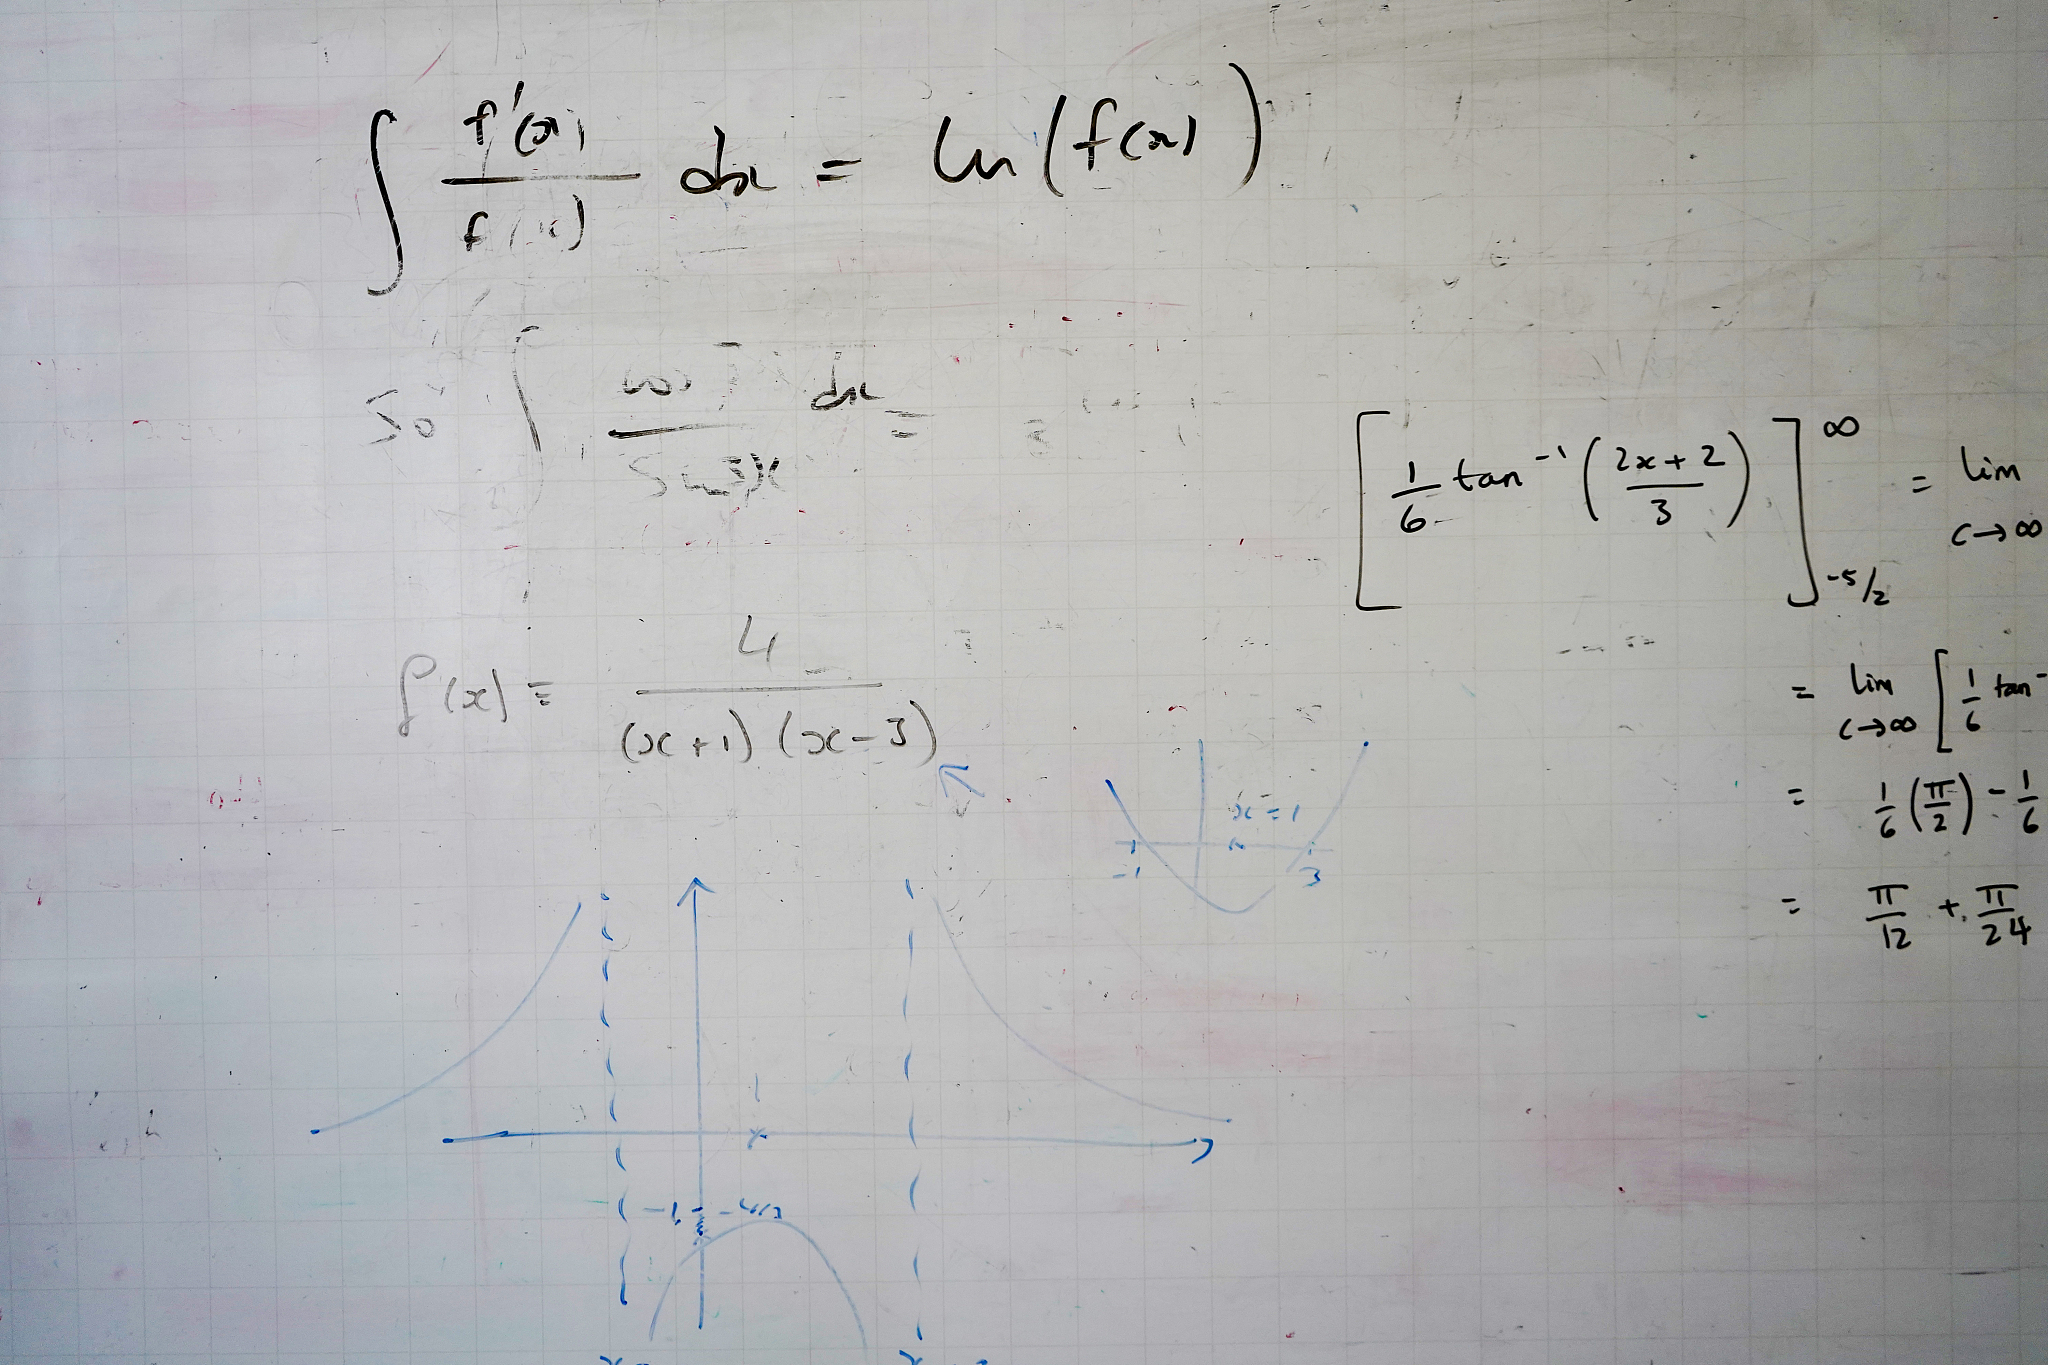 ∫ f'(x)/f(x) dx = ln(f(x))
So ∫ cos x/Sin 3x dx =
f(x) = 4/((x+1)(x-3))
x=1
-1 3
-1 -4/3
[1/6 tan⁻¹((2x+2)/3)]^∞_{-5/2} = lim c→∞
= lim c→∞ [1/6 tan⁻
= 1/6 (π/2) - 1/6
= π/12 + π/24